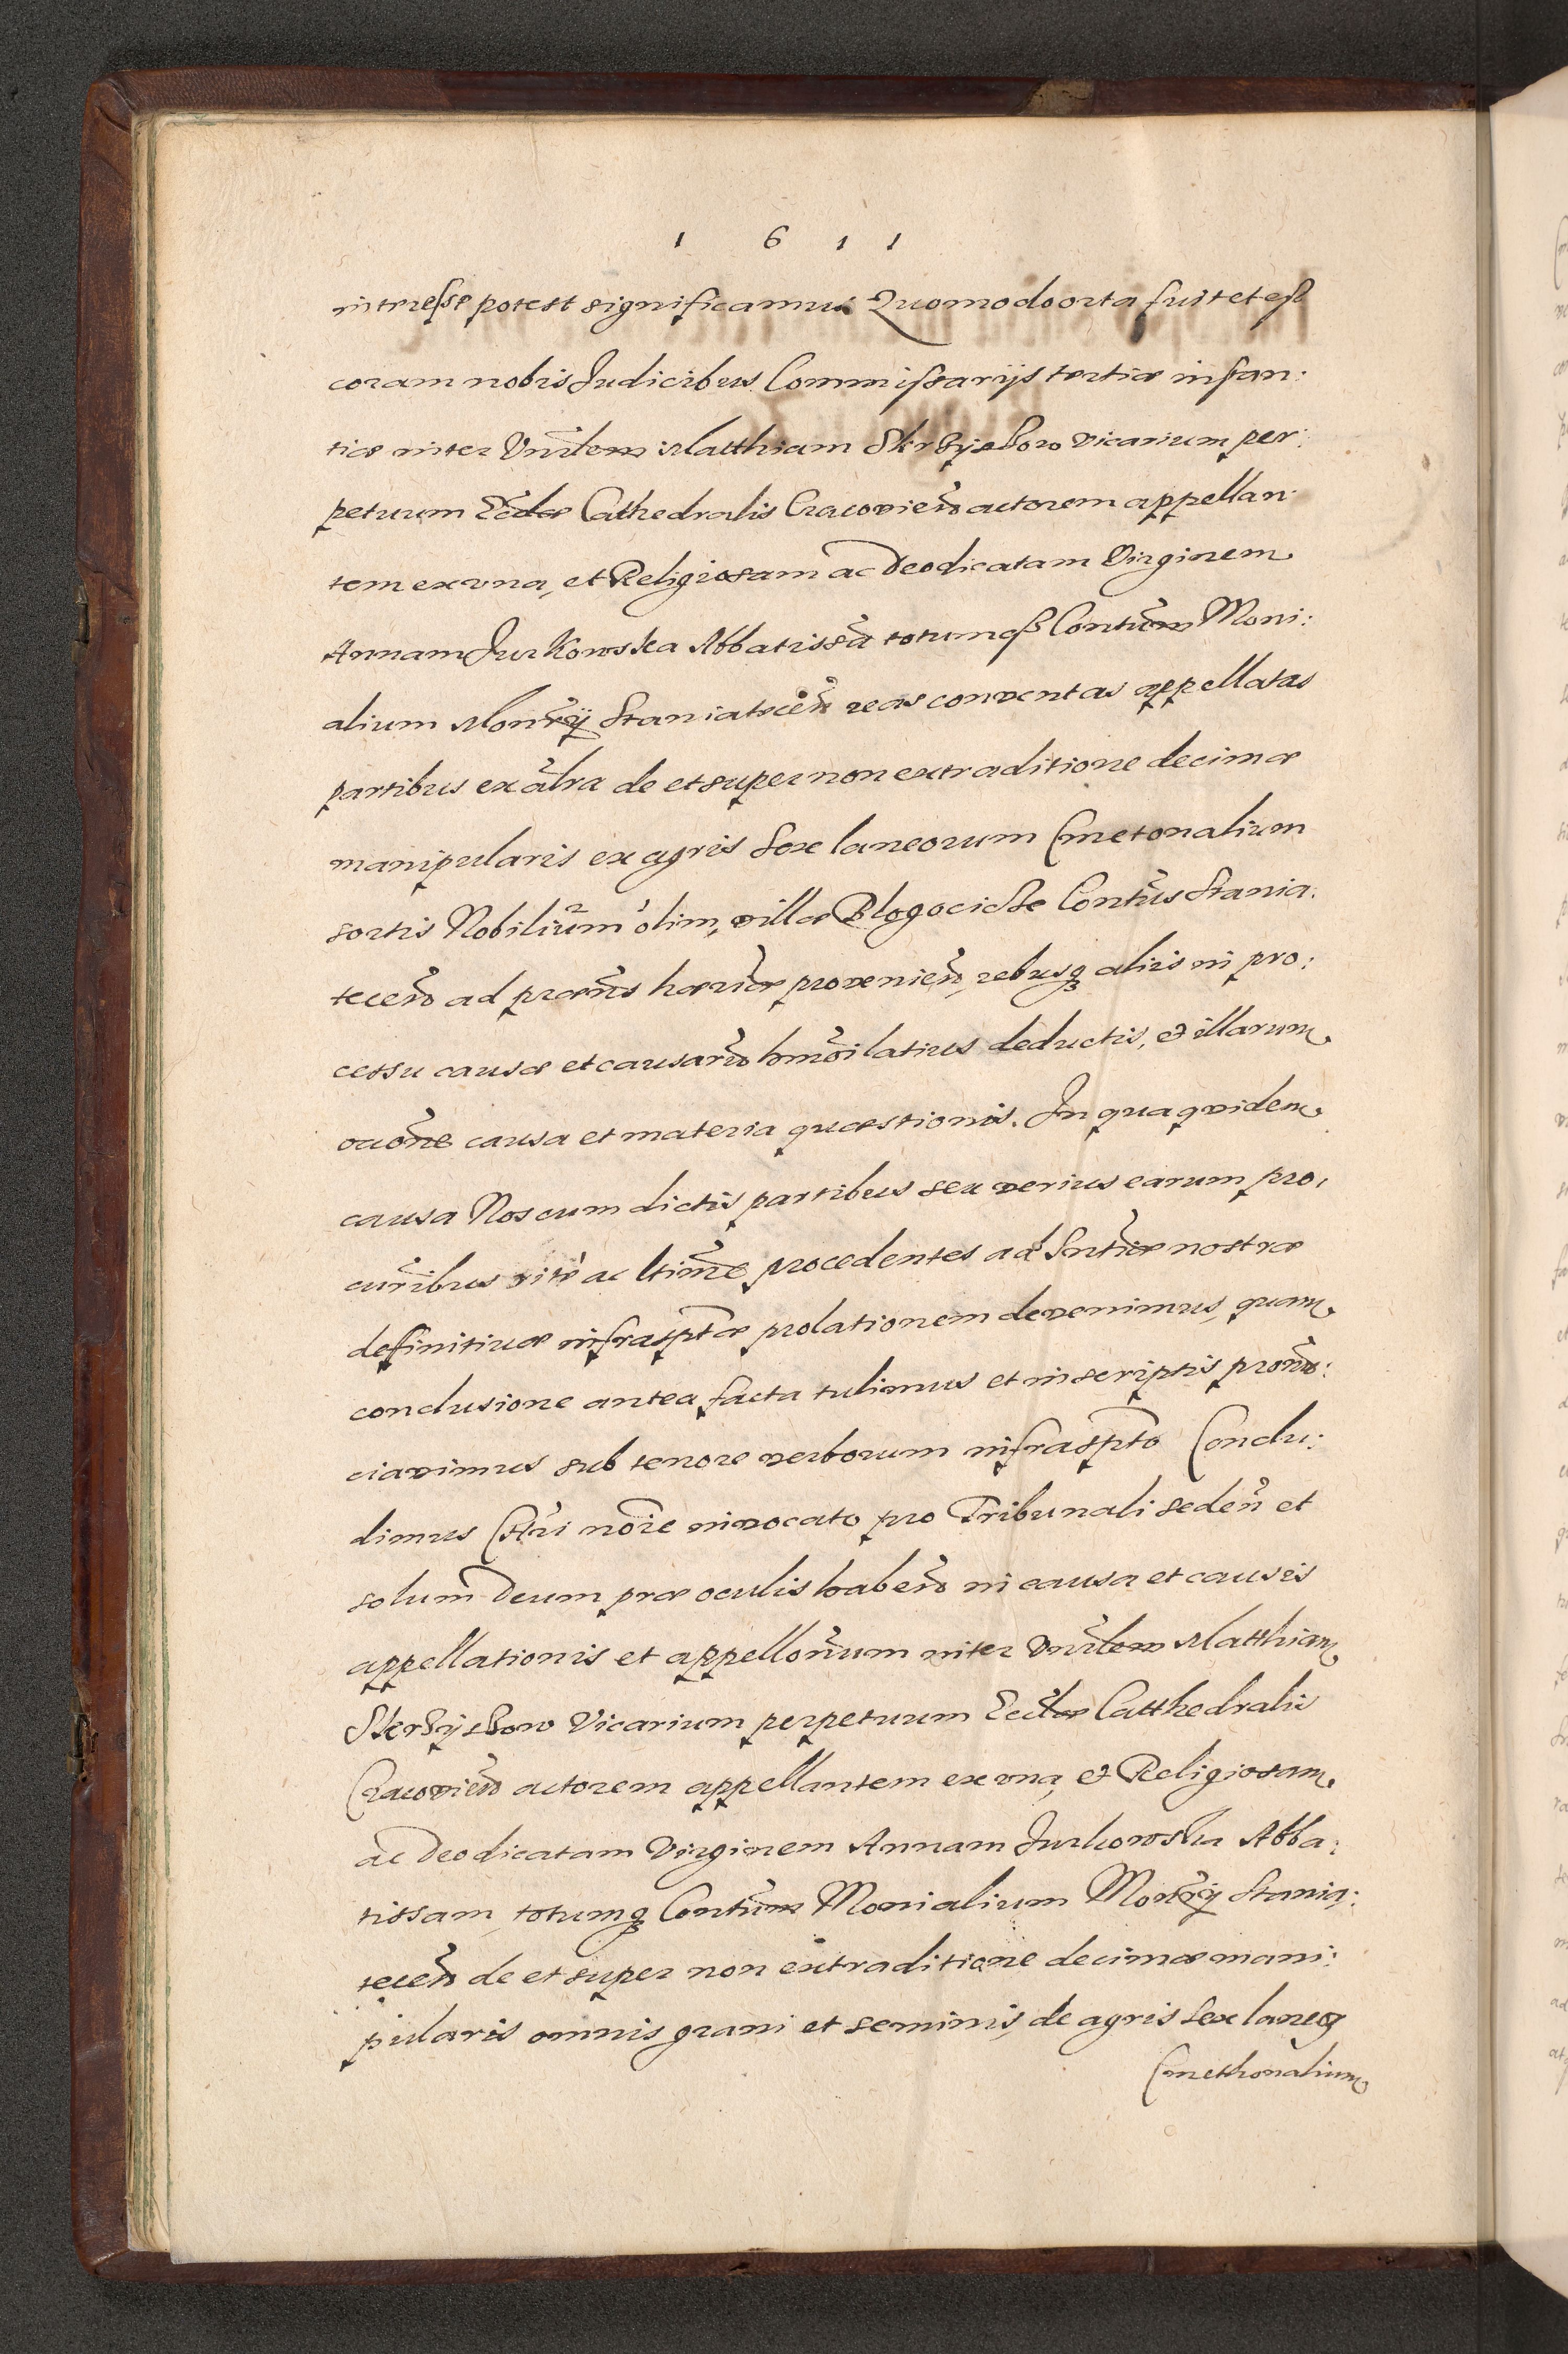 1 6 1 1
interesse potest significamus Quomodo orta fuit et est
coram nobis Judicibus Commissarijs tertiæ instan:
tiæ inter Vnrlem Matthiam vicarium per:
petuum Eccłæ Cathedralis Cracovien actorem appellan:
tem ex vna, et Religiosam ac Deodicatam Virginem
Annam Jurkowska Abbatissã totumqȝ Contũm Moni:
alium Monrÿ Staniatecen reas conventas appellatas
partibus ex alrã de et super non extraditione decimæ
manipularis ex agris Sex laneorum Cmetonalium
sortis Nobilium olim, villæ Contus Stania:
tecen ad præns hærãæ provenien, rebusqȝ alijs in pro:
cessu causæ et causarũ hmõi latius deductis, et illarum
occõne causa et materia quæstionis. In qua quidem
causa Nos cum dictis partibus seu verius earum pro,
curibus ritè ac ltime procedentes ad Sntiæ nostræ
deffinitiuæ infrasptæ prolationem devenimus, quam
conclusione antea facta tulimus et in scriptis pronũ:
ciavimus sub tenore verborum infraspto Conclu:
dimus Chri nõie invocato pro Tribunali seden et
solum Deum præ oculis haben in causa et causis
appellationis et appellonum inter Vnrlem Matthiam
Vicarium perpetuum Eccłæ Catthedralis
Cracovien actorem appellantem ex vna, et Religiosam
ac Deodicatam Virginem Annam Jurkowska Abba:
tissam, totumqȝ Contum Monialium Monrÿ Stania:
tecen de et super non extraditione decimæ mani:
pularis omnis grani et seminis, de agris sex laneoȝ
Cmethonalium